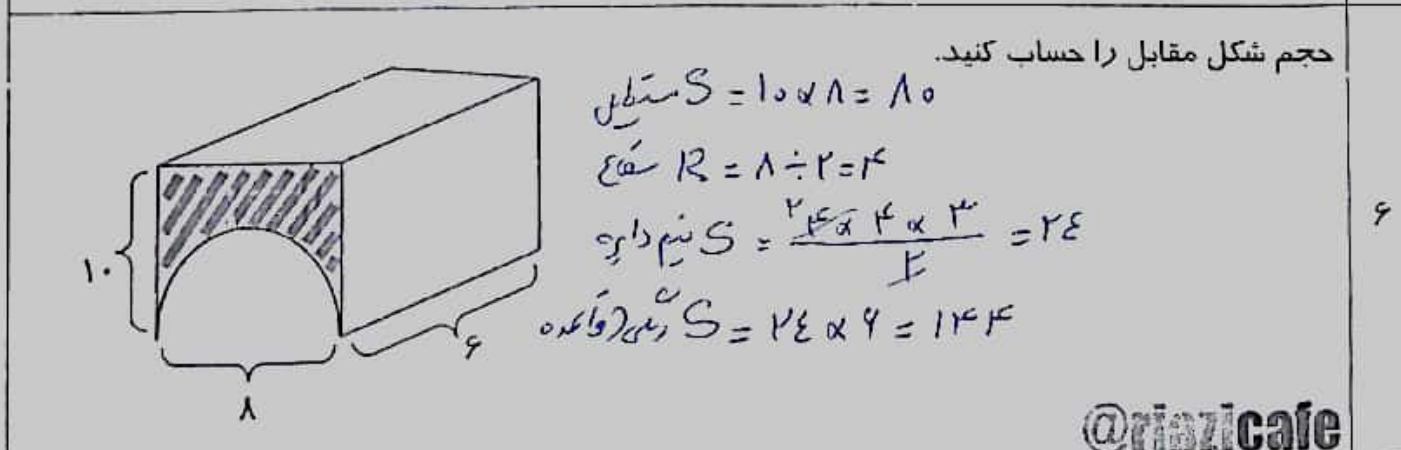 حجم شکل مقابل را حساب کنید.
مستطیل S = ۱۰ × ۸ = ۸۰
شعاع R = ۸ ÷ ۲ = ۴
نیم دایره S = ۴ × ۴ × ۳ / ۲ = ۲۴
۲
رنگی (قاعده) S = ۲۴ × ۶ = ۱۴۴
۶
۱۰
۶
۸
@riazicafe